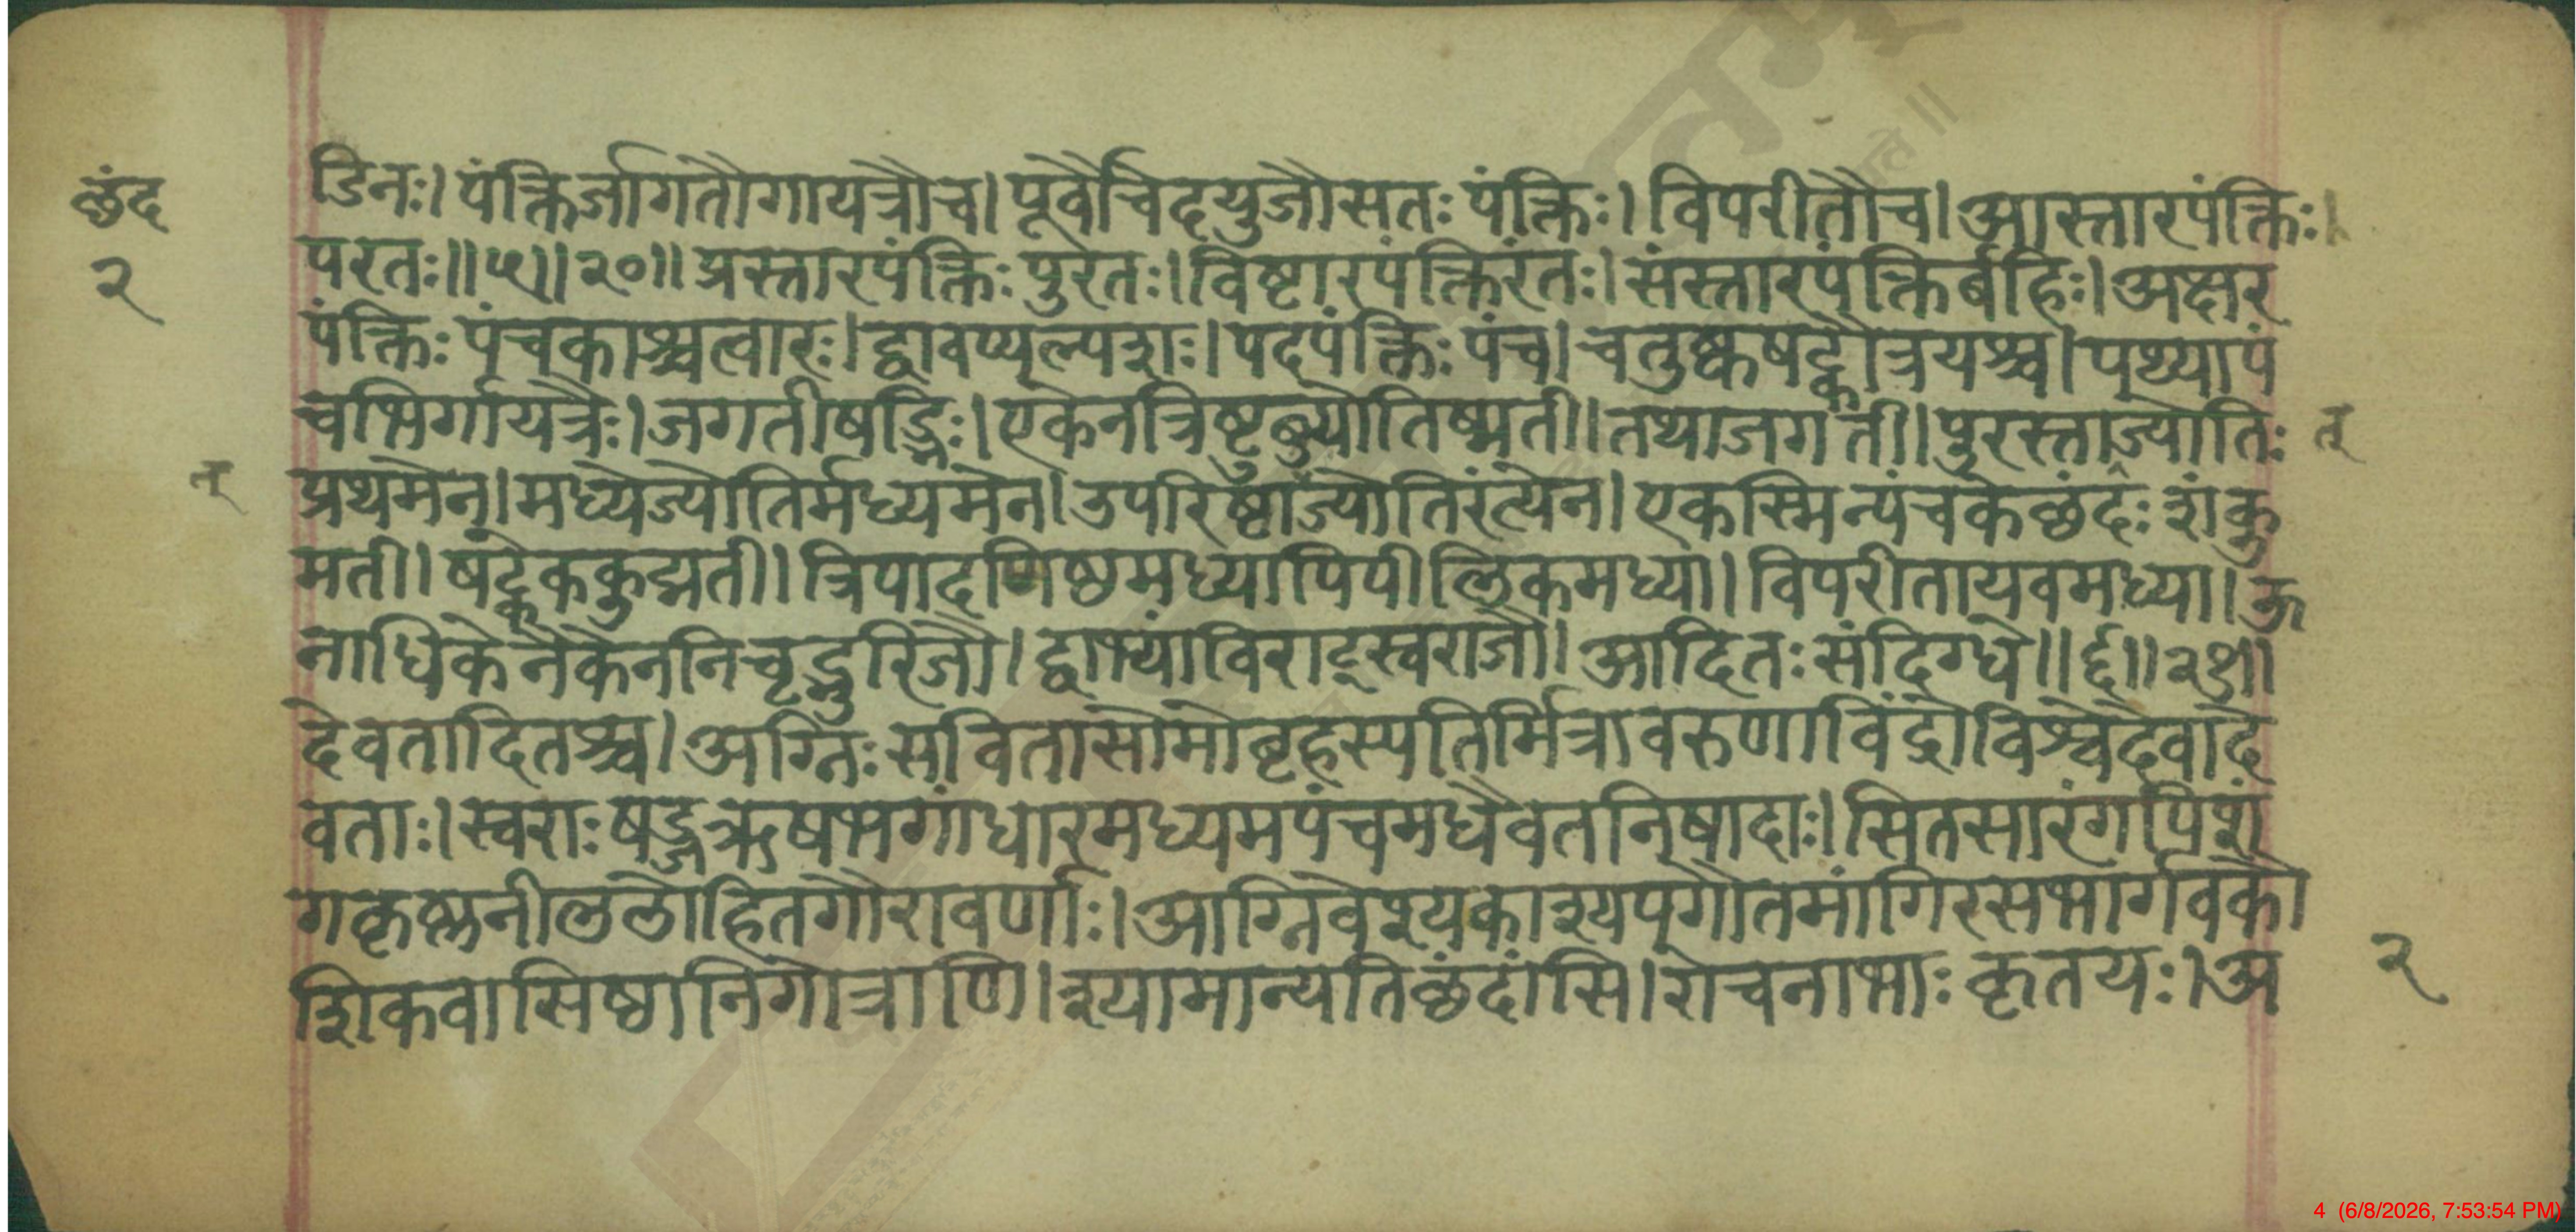 छंद
२
डिनः। पंक्तिर्जागतौगायत्रौच। पूर्वौचेदयुजौसतः पंक्तिः। विपरीतौच। आस्तारपंक्तिः।
परतः॥५॥२०॥ प्रस्तारपंक्तिः पुरतः। विष्टारपंक्तिरंतः। संस्तारपंक्तिर्बहिः। अक्षर
पंक्तिः पंचकाश्चत्वारः। द्वावप्यल्पशः। पदपंक्तिः पंच। चतुष्कषट्कौत्रयश्च। पथ्यापं
चभिर्गायत्रैः। जगतीषड्भिः। एकेनत्रिष्टुब्ज्योतिष्मती। तथाजगती। पुरस्ताज्योतिः
त्
प्रथमेन। मध्येज्योतिर्मध्यमेन। उपरिष्टाज्योतिरंत्येन। एकस्मिन्पंचकेछंदः शंकु
त्
मती। षट्केककुद्मती। त्रिपादणिष्ठमध्यापिपीलिकमध्या। विपरीतायवमध्या। ऊ
नाधिकेनैकेननिचृद्भुरिजौ। द्वाभ्यांविराट्स्वराजौ। आदितःसंदिग्धे॥६॥२१॥
देवतादितश्च। अग्निः सवितासोमोबृहस्पतिर्मित्रावरुणाविंद्रोविश्वेदेवादे
वताः। स्वराः षड्जऋषभगांधारमध्यमपंचमधैवतनिषादाः। सितसारंगपिशं
गकृष्णनीललोहितगौरावर्णाः। आग्निवेश्यकाश्यपगौतमांगिरसभार्गवकौ
शिकवासिष्ठानिगोत्राणि। श्यामान्यतिछंदांसि। रोचनाभाः कृतयः। अ
२
4 (6/8/2026, 7:53:54 PM)